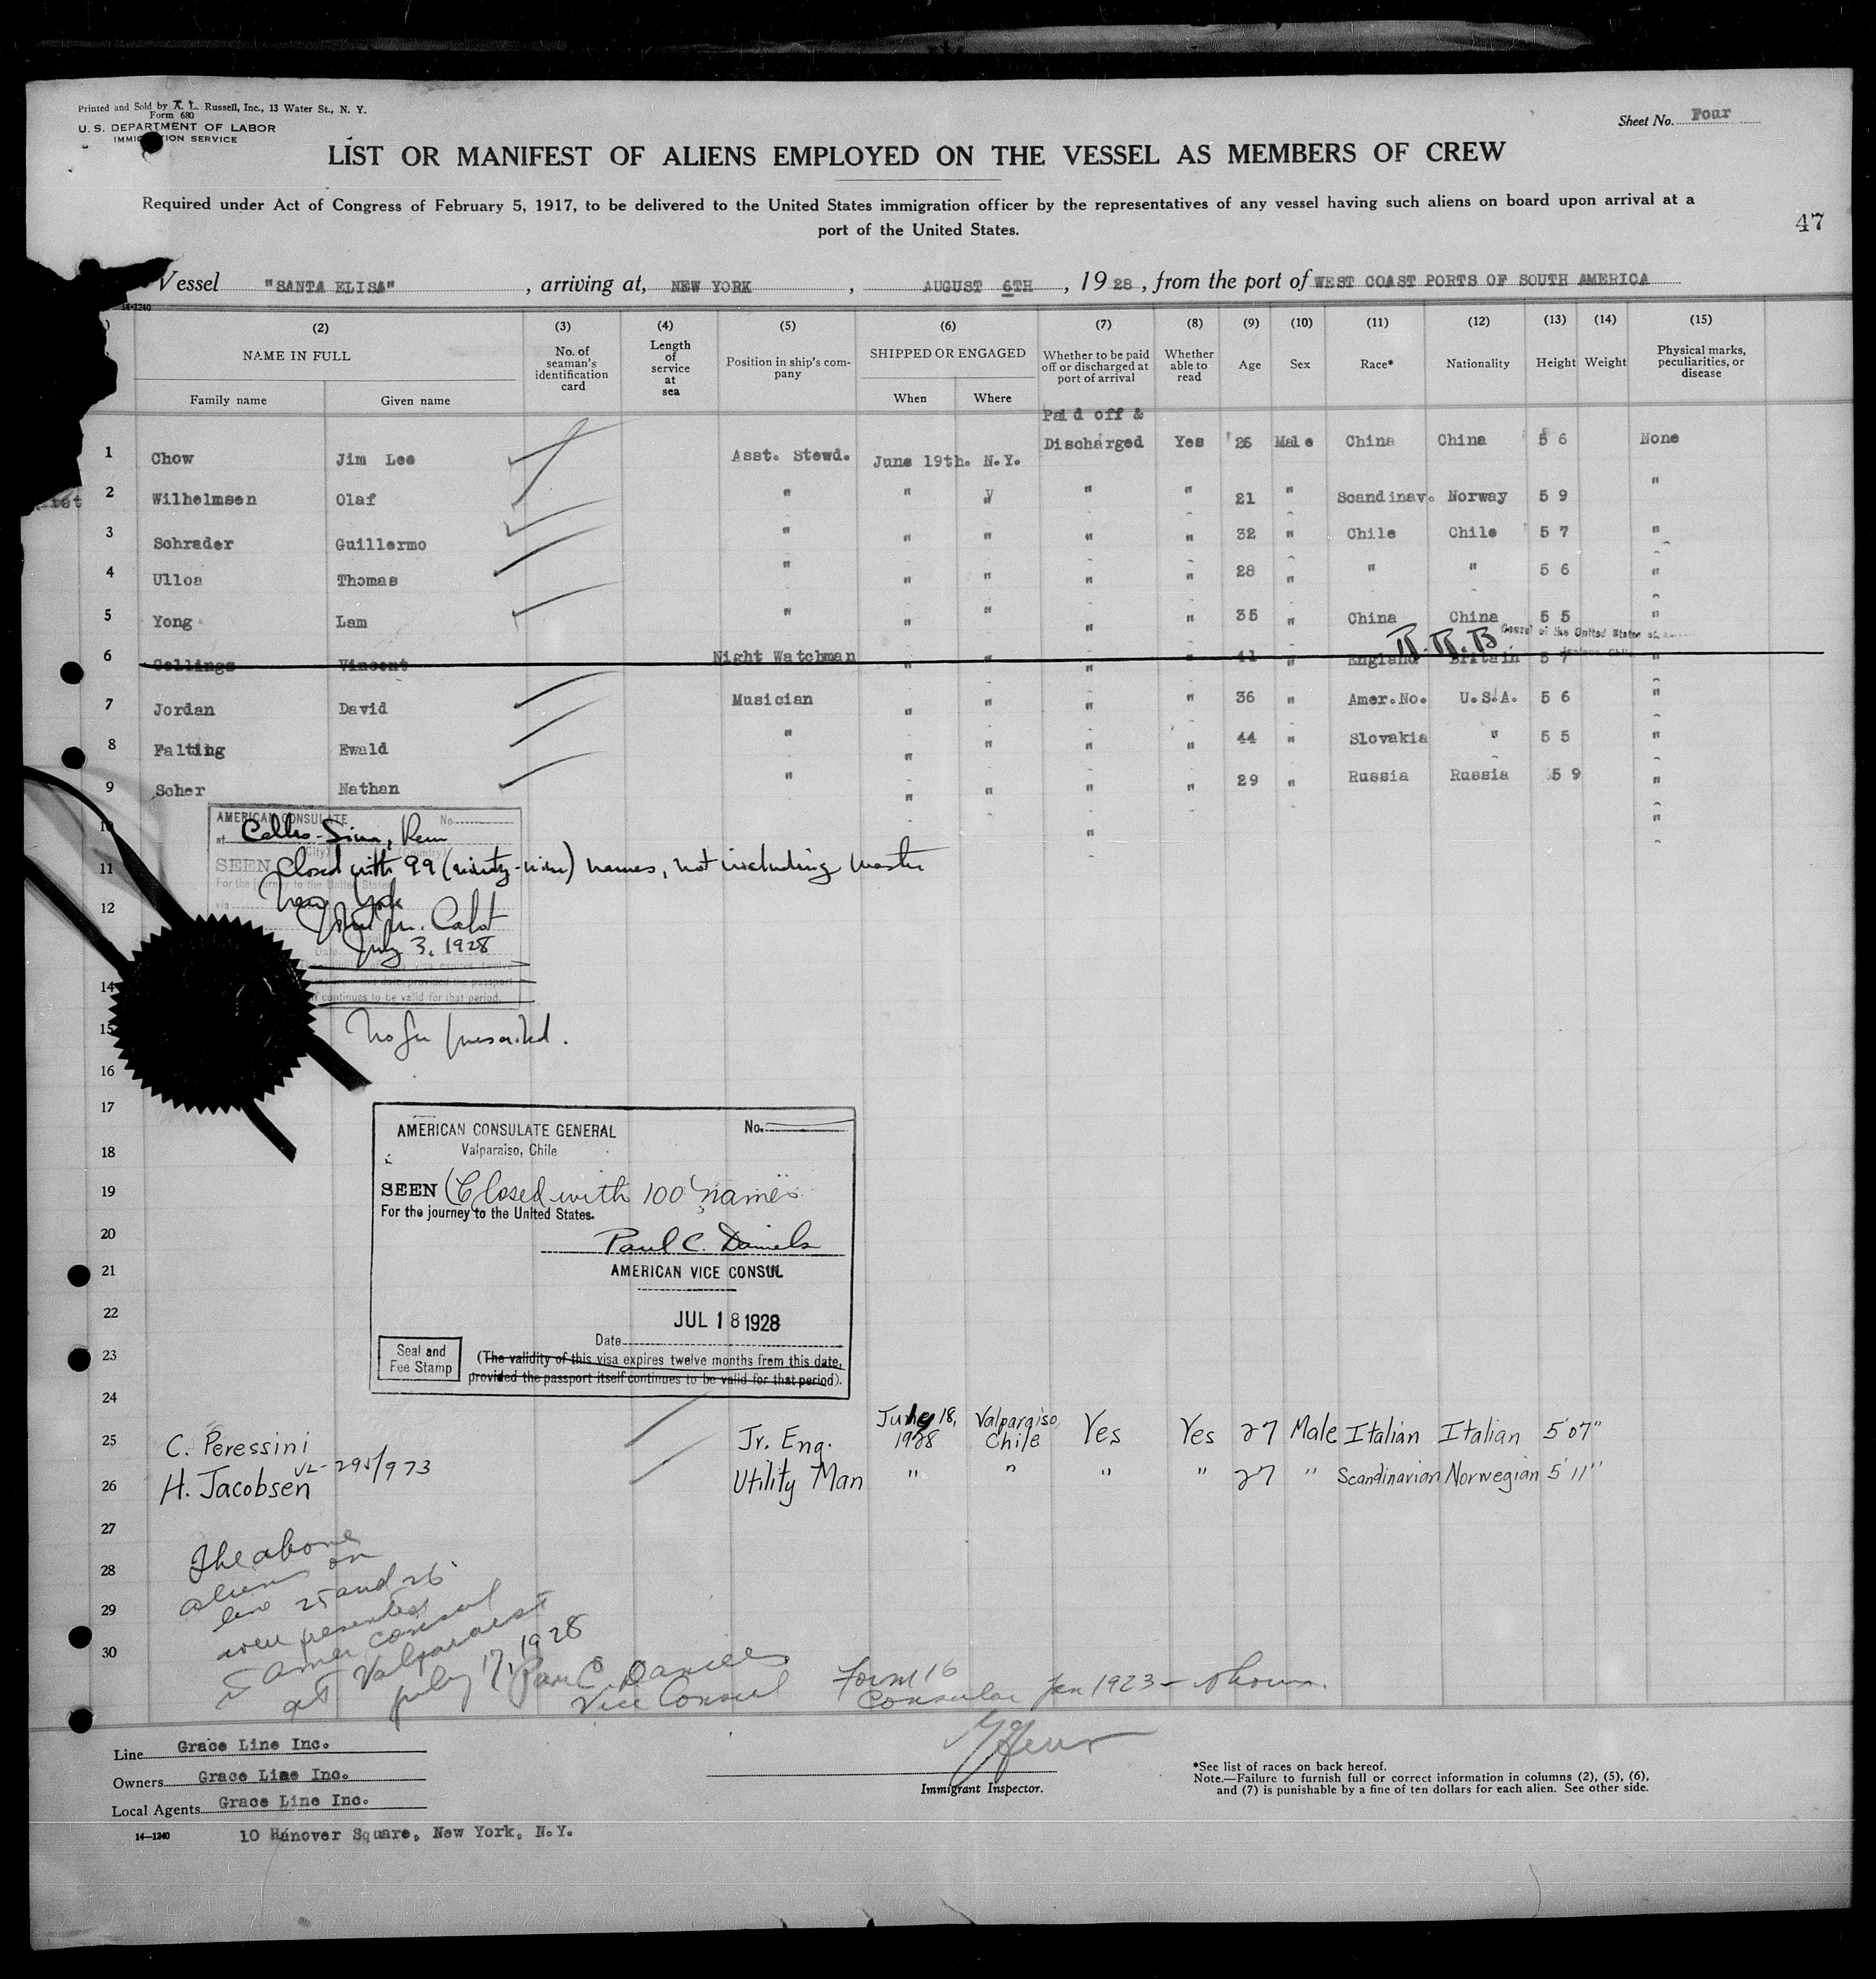 Printed and Sold by A. L. Russell, Inc., 13 Water St., N. Y.
Form 680
U. S. DEPARTMENT OF LABOR
IMMIGRATION SERVICE
Sheet No. Four
LIST OR MANIFEST OF ALIENS EMPLOYED ON THE VESSEL AS MEMBERS OF CREW
Required under Act of Congress of February 5, 1917, to be delivered to the United States immigration officer by the representatives of any vessel having such aliens on board upon arrival at a
port of the United States.
47
Vessel "SANTA ELISA", arriving at, NEW YORK, AUGUST 6TH, 1928, from the port of WEST COAST PORTS OF SOUTH AMERICA
14-1240
(2) (3) (4) (5) (6) (7) (8) (9) (10) (11) (12) (13) (14) (15)
NAME IN FULL No. of seaman's identification card Length of service at sea Position in ship's company SHIPPED OR ENGAGED Whether to be paid off or discharged at port of arrival Whether able to read Age Sex Race* Nationality Height Weight Physical marks, peculiarities, or disease
Family name Given name When Where
Paid off &
1 Chow Jim Lee Asst. Stewd. June 19th. N.Y. Discharged Yes 26 Male China China 5 6 None
2 Wilhelmsen Olaf " " " " " 21 " Scandinav. Norway 5 9 "
3 Schrader Guillermo " " " " " 32 " Chile Chile 5 7 "
4 Ulloa Thomas " " " " " 28 " " " 5 6 "
5 Yong Lam " " " " " 35 " China China 5 5 "
6 Collings Vincent Night Watchman " " " " 41 " England Britain 5 7 "
7 Jordan David Musician " " " " 36 " Amer.No. U.S.A. 5 6 "
8 Falting Ewald " " " " " 44 " Slovakia " 5 5 "
9 Scher Nathan " " " " " 29 " Russia Russia 5 9 "
10
AMERICAN CONSULATE No.
at
11
SEEN Closed with 99 (ninety-nine) names, not including master
For the journey to the United States
12
New York
John M. Cabot
July 3, 1928
14
continues to be valid for that period.
15
No fee prescribed.
16
17
AMERICAN CONSULATE GENERAL No.
Valparaiso, Chile
18
19
SEEN (Closed with 100 names
For the journey to the United States.
20
Paul C. Daniels
21
AMERICAN VICE CONSUL
22
JUL 18 1928
Date
23
Seal and
Fee Stamp
(The validity of this visa expires twelve months from this date,
provided the passport itself continues to be valid for that period).
24
25 C. Peressini Jr. Eng. July 18, 1928 Valparaiso, Chile Yes Yes 27 Male Italian Italian 5'07"
26 H. Jacobsen Utility Man " " " " 27 " Scandinavian Norwegian 5'11"
27
The above
28
aliens on
line 25 and 26
29
were presented
to Amer Consul
30
at Valparaiso
July 17, 1928
Paul C. Daniels
Vice Consul
Form 16
Consular Jan 1923 - shown.
Line Grace Line Inc.
Owners Grace Line Inc.
Local Agents Grace Line Inc.
14-1240 10 Hanover Square, New York, N.Y.
Immigrant Inspector.
*See list of races on back hereof.
Note.—Failure to furnish full or correct information in columns (2), (5), (6),
and (7) is punishable by a fine of ten dollars for each alien. See other side.